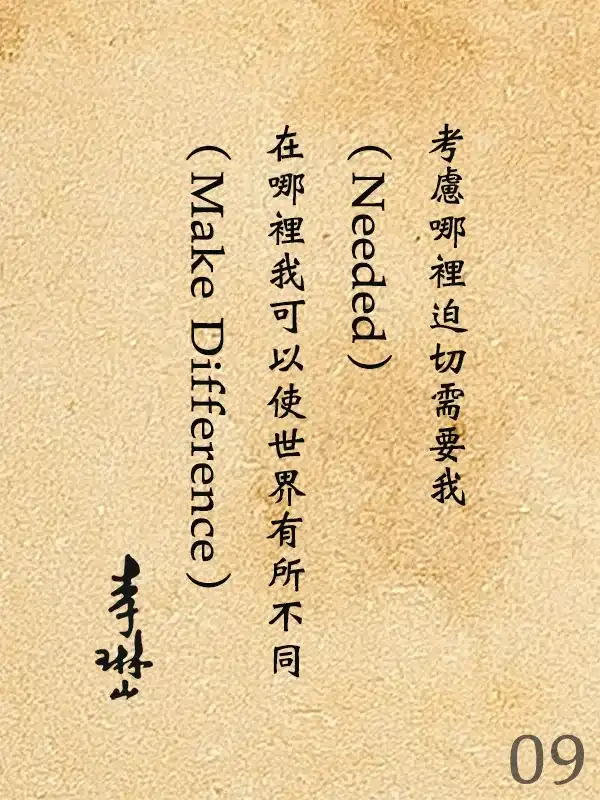 考慮哪裡迫切需要我
（Needed）
在哪裡我可以使世界有所不同
（Make Difference）
李琳山
09